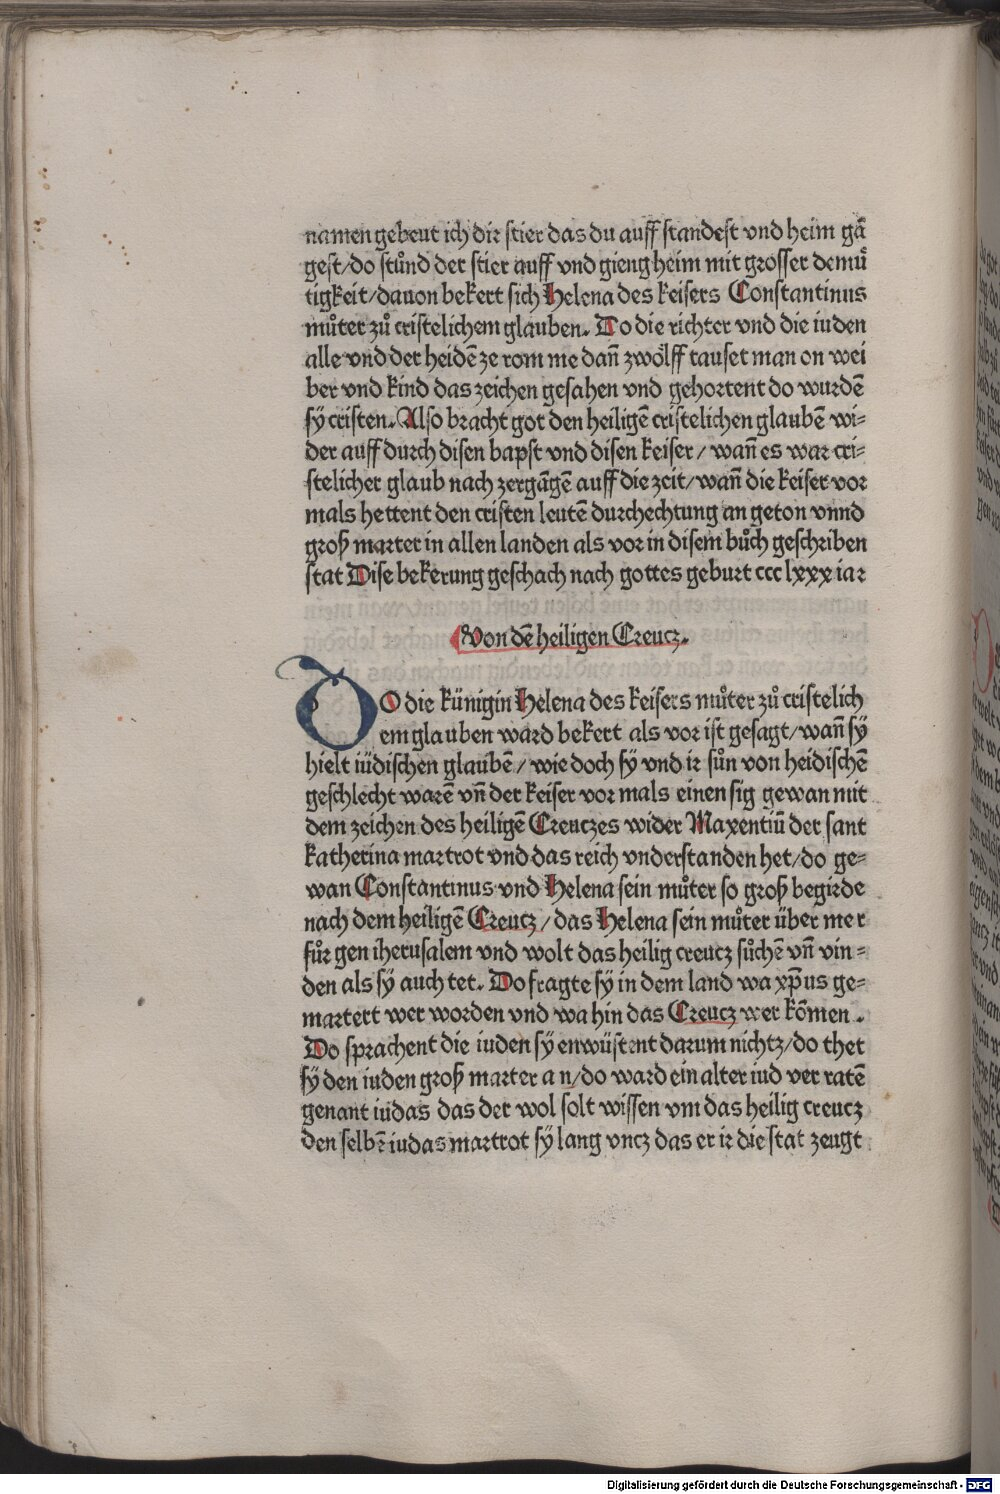 namen gebeut ich dir stier das du auff standest vnd heim gā
gest/do stůnd der stier auff vnd gieng heim mit grosser demů
tigkeit/dauon bekert sich Helena des keisers Constantinus
můter zů cristelichem glauben. Do die richter vnd die iuden
alle vnd der heidē ze rom me dañ zwölff tauset man on wei
ber vnd kind das zeichen gesahen vnd gehortent do wurdē
sy cristen. Also bracht got den heiligē cristelichen glaubē wi-
der auff durch disen bapst vnd disen keiser / wañ es war cri-
stelicher glaub nach zergāgē auff die zeit/wañ die keiser vor
mals hettent den cristen leutē durchechtung an geton vnnd
groß marter in allen landen als vor in disem bůch geschriben
stat Dise bekerung geschach nach gottes geburt ccc lxxx iar
Von dē heiligen Creucz.
DO die künigin Helena des keisers můter zů cristelich
em glauben ward bekert als vor ist gesagt/wañ sy
hielt iüdischen glaubē / wie doch sy vnd ir sůn von heidischē
geschlecht warē vñ der keiser vor mals einen sig gewan mit
dem zeichen des heiligē Creuczes wider Maxentiū der sant
katherina martrot vnd das reich vnderstanden het/do ge-
wan Constantinus vnd Helena sein můter so groß begirde
nach dem heiligē Creucz / das Helena sein můter über mer
fůr gen iherusalem vnd wolt das heilig creucz sůchē vñ vin-
den als sy auch tet. Do fragte sy in dem land wa xp̄us ge-
martert wer worden vnd wa hin das Creucz wer kōmen.
Do sprachent die iuden sy enwüstent darum nichtz/do thet
sy den iuden groß marter an/do ward ein alter iud ver ratē
genant iudas das der wol solt wissen vm das heilig creucz
den selbē iudas martrot sy lang vncz das er ir die stat zeugt
Digitalisierung gefördert durch die Deutsche Forschungsgemeinschaft - DFG